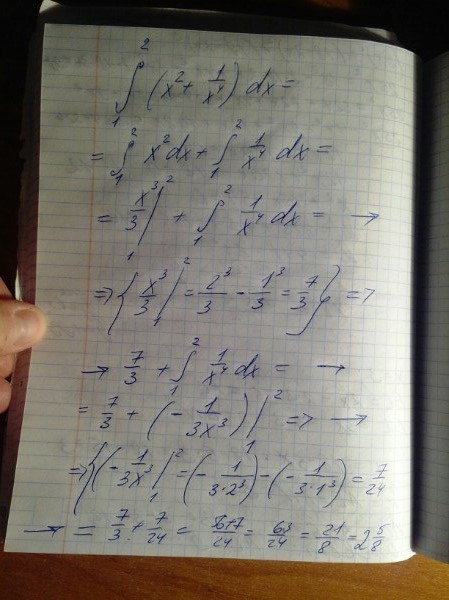 ∫₁² (x² + 1/x⁴) dx =
= ∫₁² x² dx + ∫₁² 1/x⁴ dx =
= x³/3 |₁² + ∫₁² 1/x⁴ dx = →
=> { x³/3 |₁² = 2³/3 - 1³/3 = 7/3 } =>
→ 7/3 + ∫₁² 1/x⁴ dx = →
= 7/3 + (- 1/3x³) |₁² => →
=> { (- 1/3x³ |₁² = (- 1/3·2³) - (- 1/3·1³) = 7/24
→ = 7/3 + 7/24 = 56+7/24 = 63/24 = 21/8 = 2 5/8